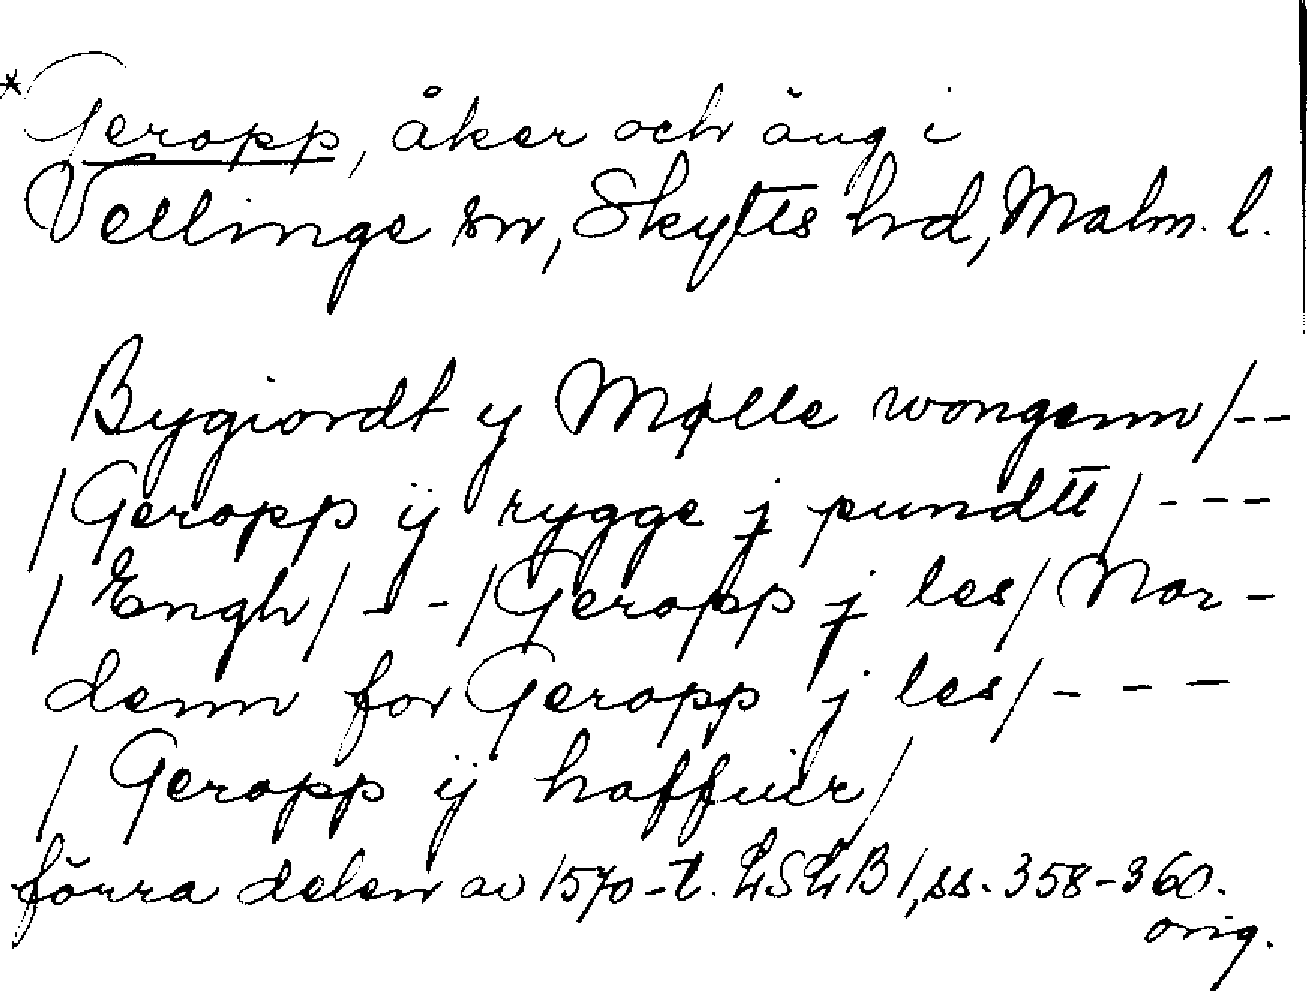 *Geropp, åker och äng i
Vellinge sn, Skytts hd, Malm. l.
Bygiordt y Mølle wongenn/--
/Geropp ij rygge j pundtt/---
/Engh/--/Geropp j les/Nor-
denn for Geropp j les/---
/Geropp ij haffuer/
förra delen av 1570-t. LSLB 1, ss. 358-360.
orig.